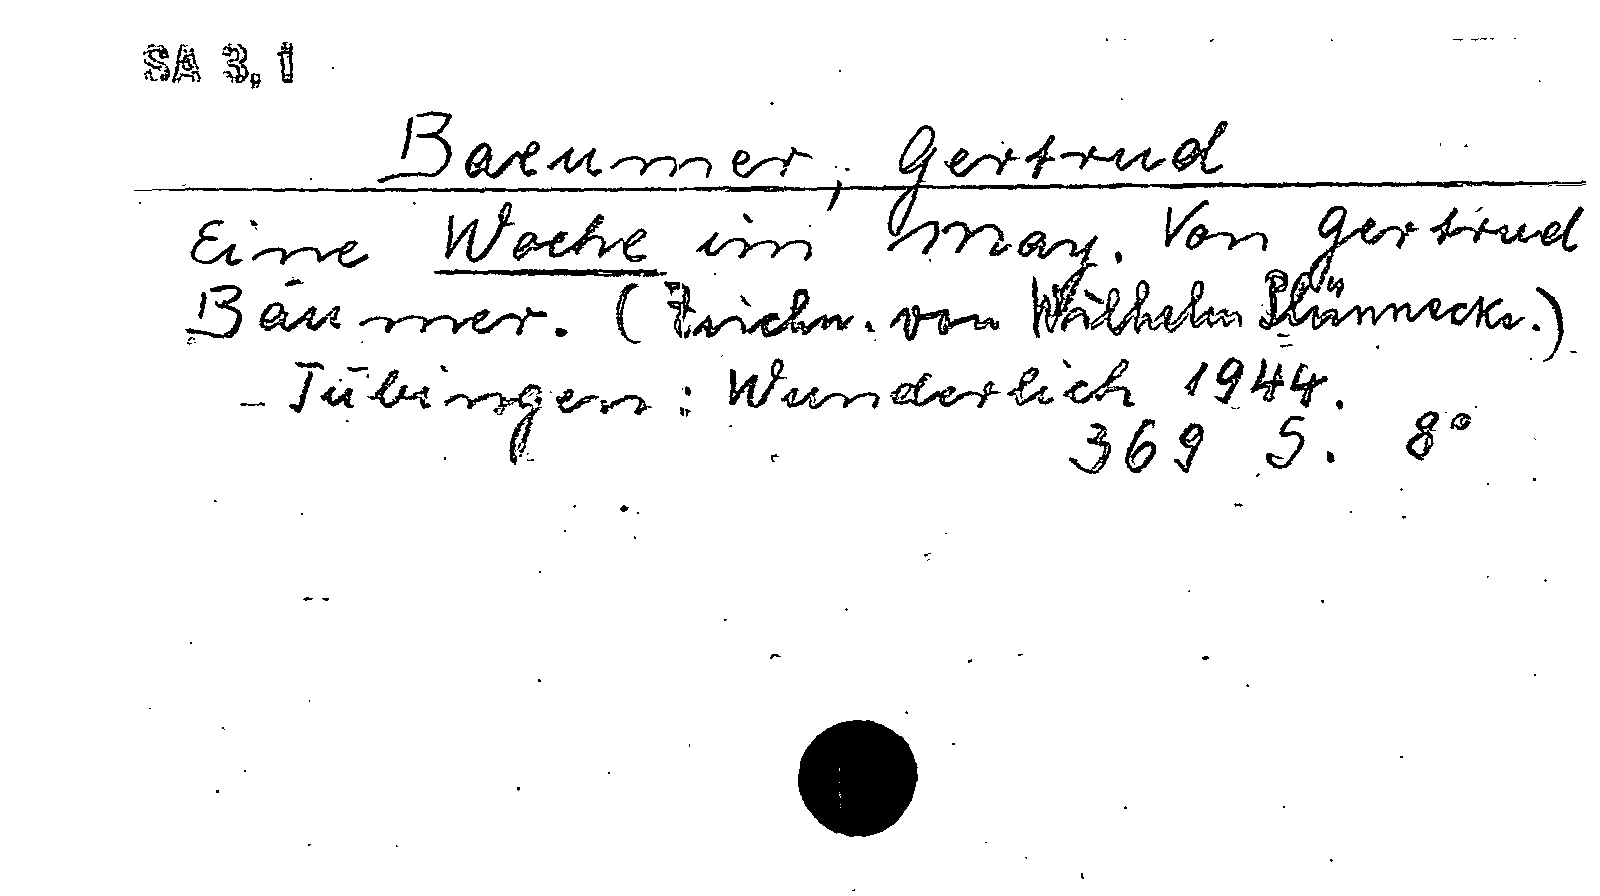 SA 3, 1
Baeumer, Gertrud
Eine Woche im May. Von Gertrud
Bäumer. (Zeichn. von Wilhelm Plünnecke.)
- Tübingen: Wunderlich 1944.
369 S. 8°